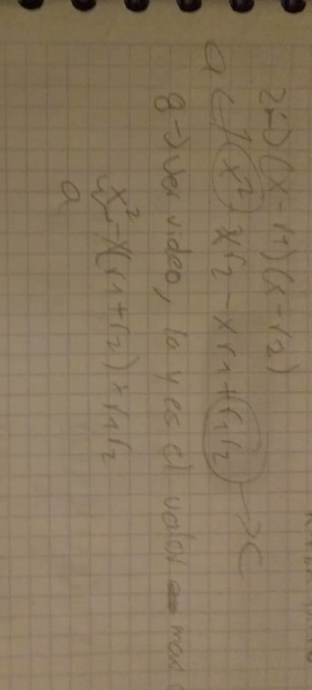 2.-) (x - r1)(x - r2)
a ← 1(x²) - xr2 - xr1 + (r1r2) → C
8 → ver video, la y es el valor max
x² - x(r1 + r2) + r1r2
a